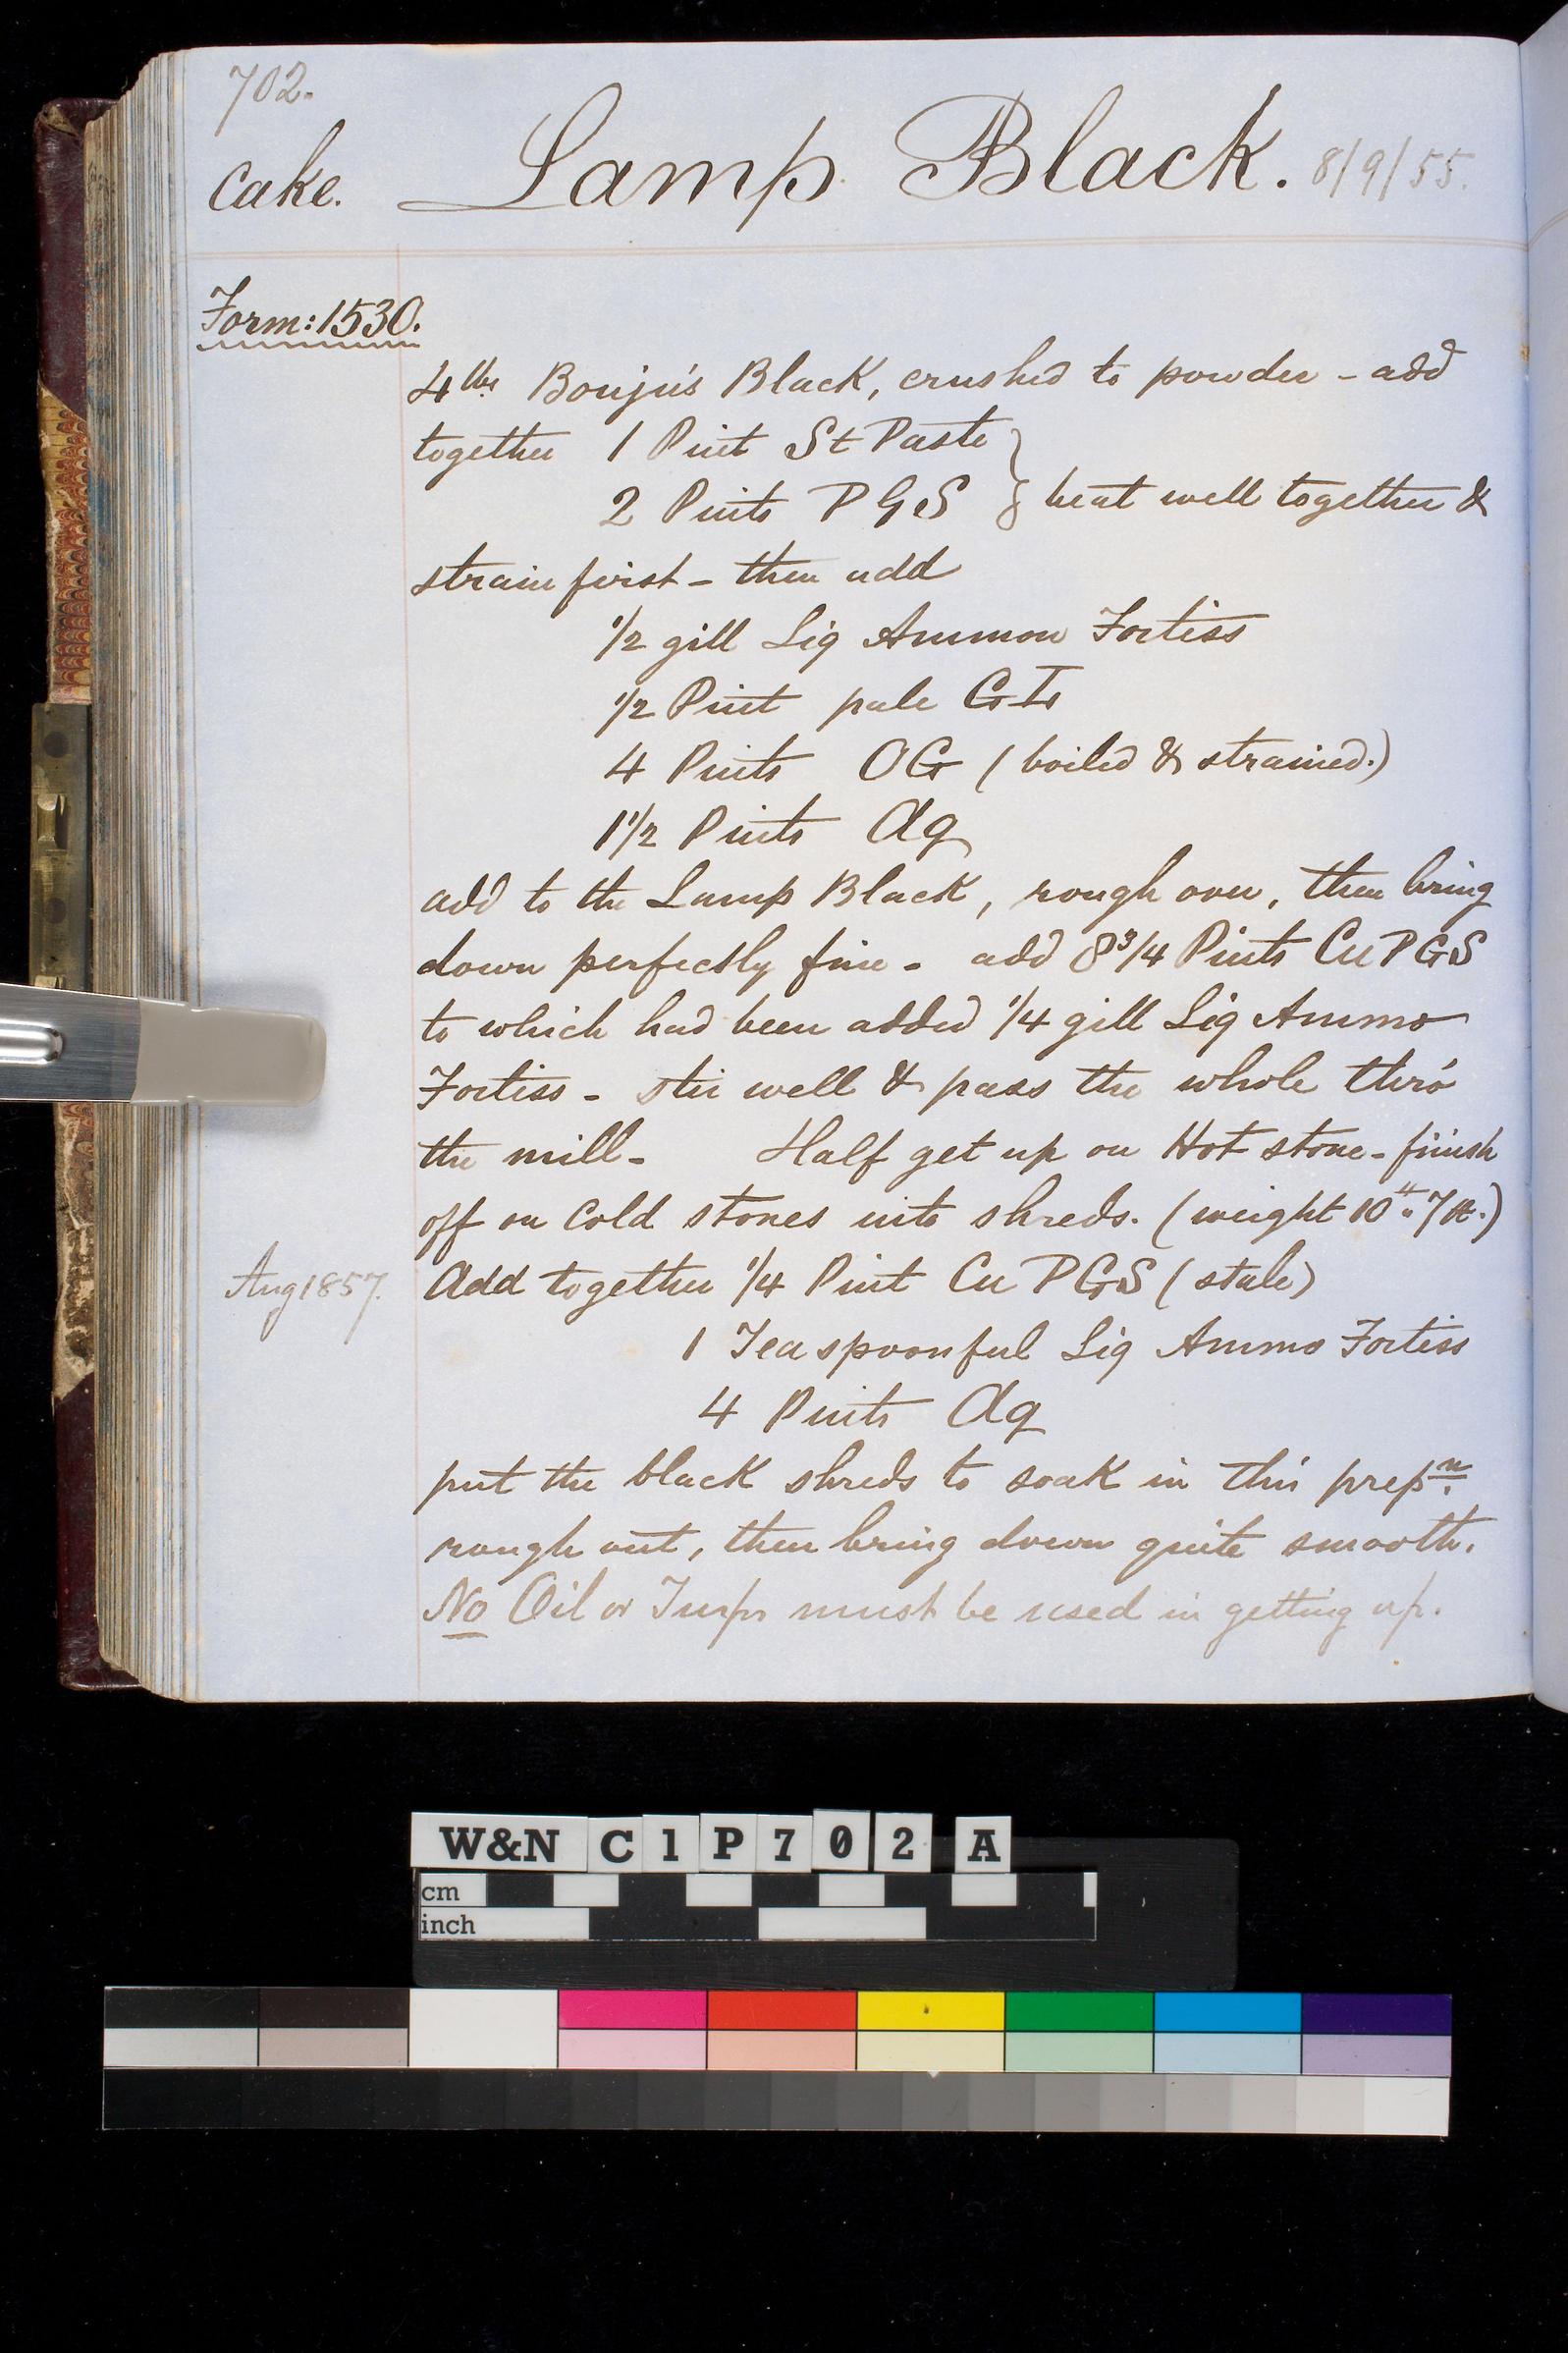 702.
Cake. Lamp Black. 8/9/55.
Form: 1530.
4 lbs Bouju's Black, crushed to powder - add
together 1 Pint St Paste }
2 Pints P G S } beat well together &
strain first - then add
1/2 gill Liq Ammon Fortiss
1/2 Pint pale G T
4 Pints OG (boiled & strained.)
1 1/2 Pints Aq
add to the Lamp Black, rough over, then bring
down perfectly fine - add 8 3/4 Pints Cu P G S
to which had been added 1/4 gill Liq Ammo
Fortiss - stir well & pass the whole thro'
the mill - Half get up on Hot stone - finish
off on Cold stones into shreds. (weight 10 " 7
Aug 1857. Add together 1/4 Pint Cu P G S (stale)
1 Teaspoonful Liq Ammo Fortiss
4 Pints Aq
put the black shreds to soak in this prepn.
rough out, then bring down quite smooth.
No Oil or Turps must be used in getting up.
W&N C1P702 A
cm
inch